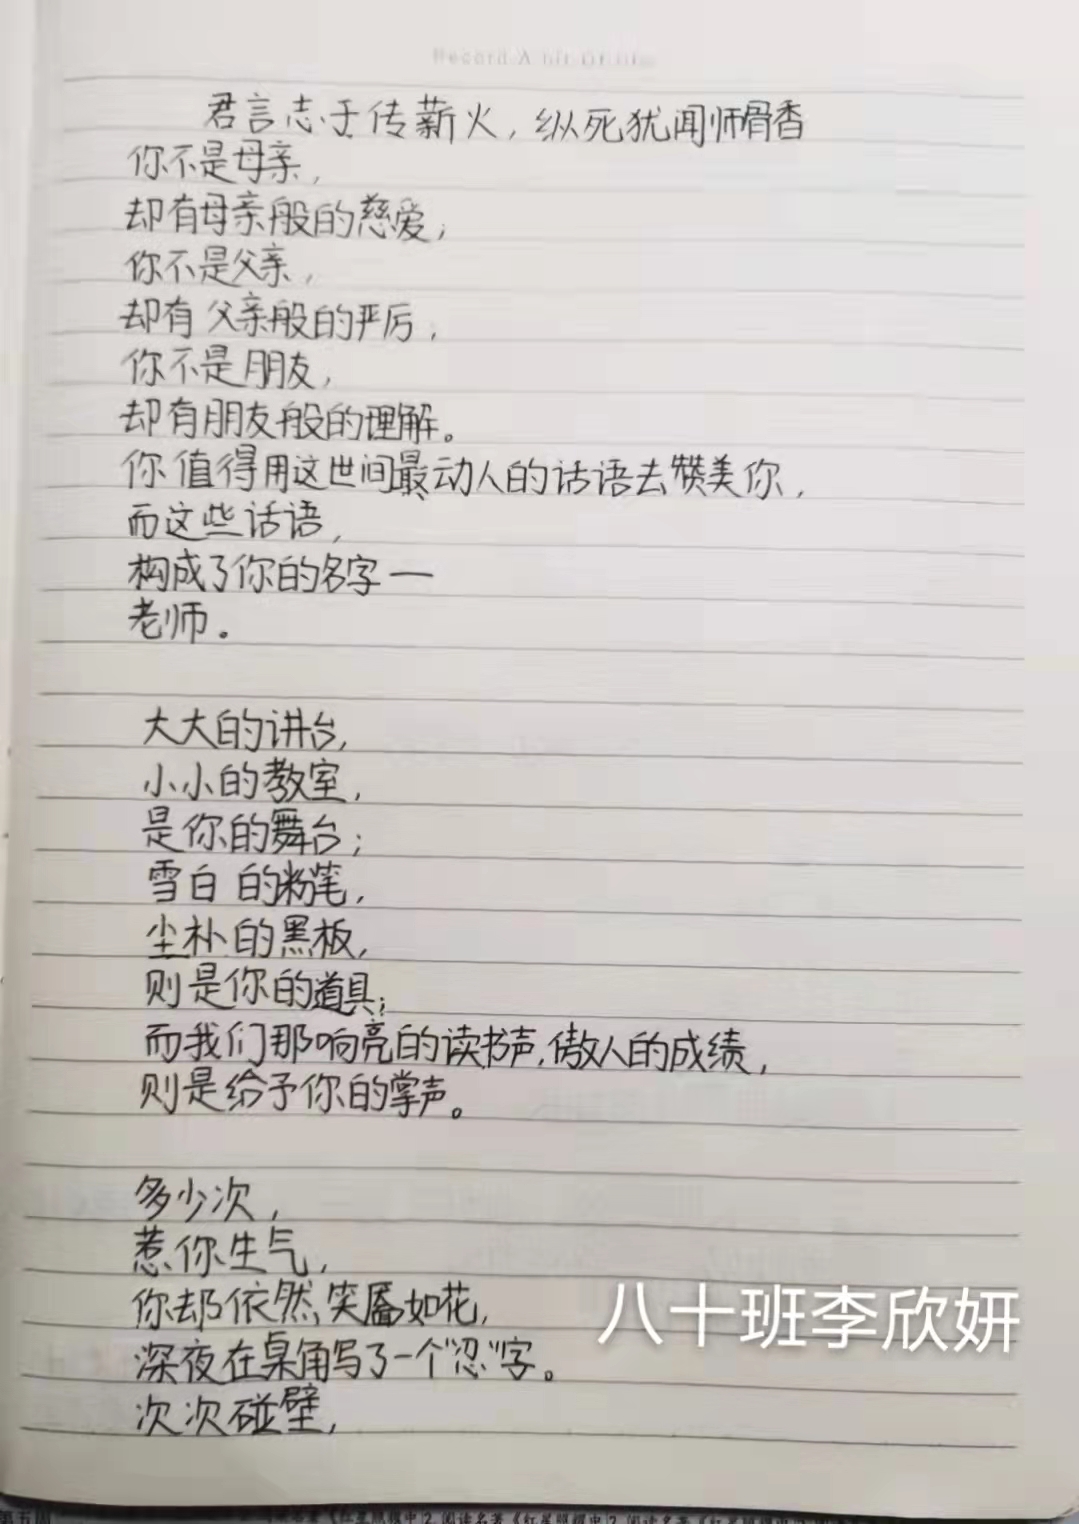 君言志于传薪火，纵死犹闻师骨香
你不是母亲，
却有母亲般的慈爱；
你不是父亲，
却有父亲般的严厉，
你不是朋友，
却有朋友般的理解。
你值得用这世间最动人的话语去赞美你，
而这些话语，
构成了你的名字—
老师。
大大的讲台，
小小的教室，
是你的舞台；
雪白的粉笔，
尘朴的黑板，
则是你的道具；
而我们那响亮的读书声，傲人的成绩，
则是给予你的掌声。
多少次，
惹你生气，
你却依然笑靥如花，
深夜在桌角写了一个“忍”字。
次次碰壁，
八十班李欣妍